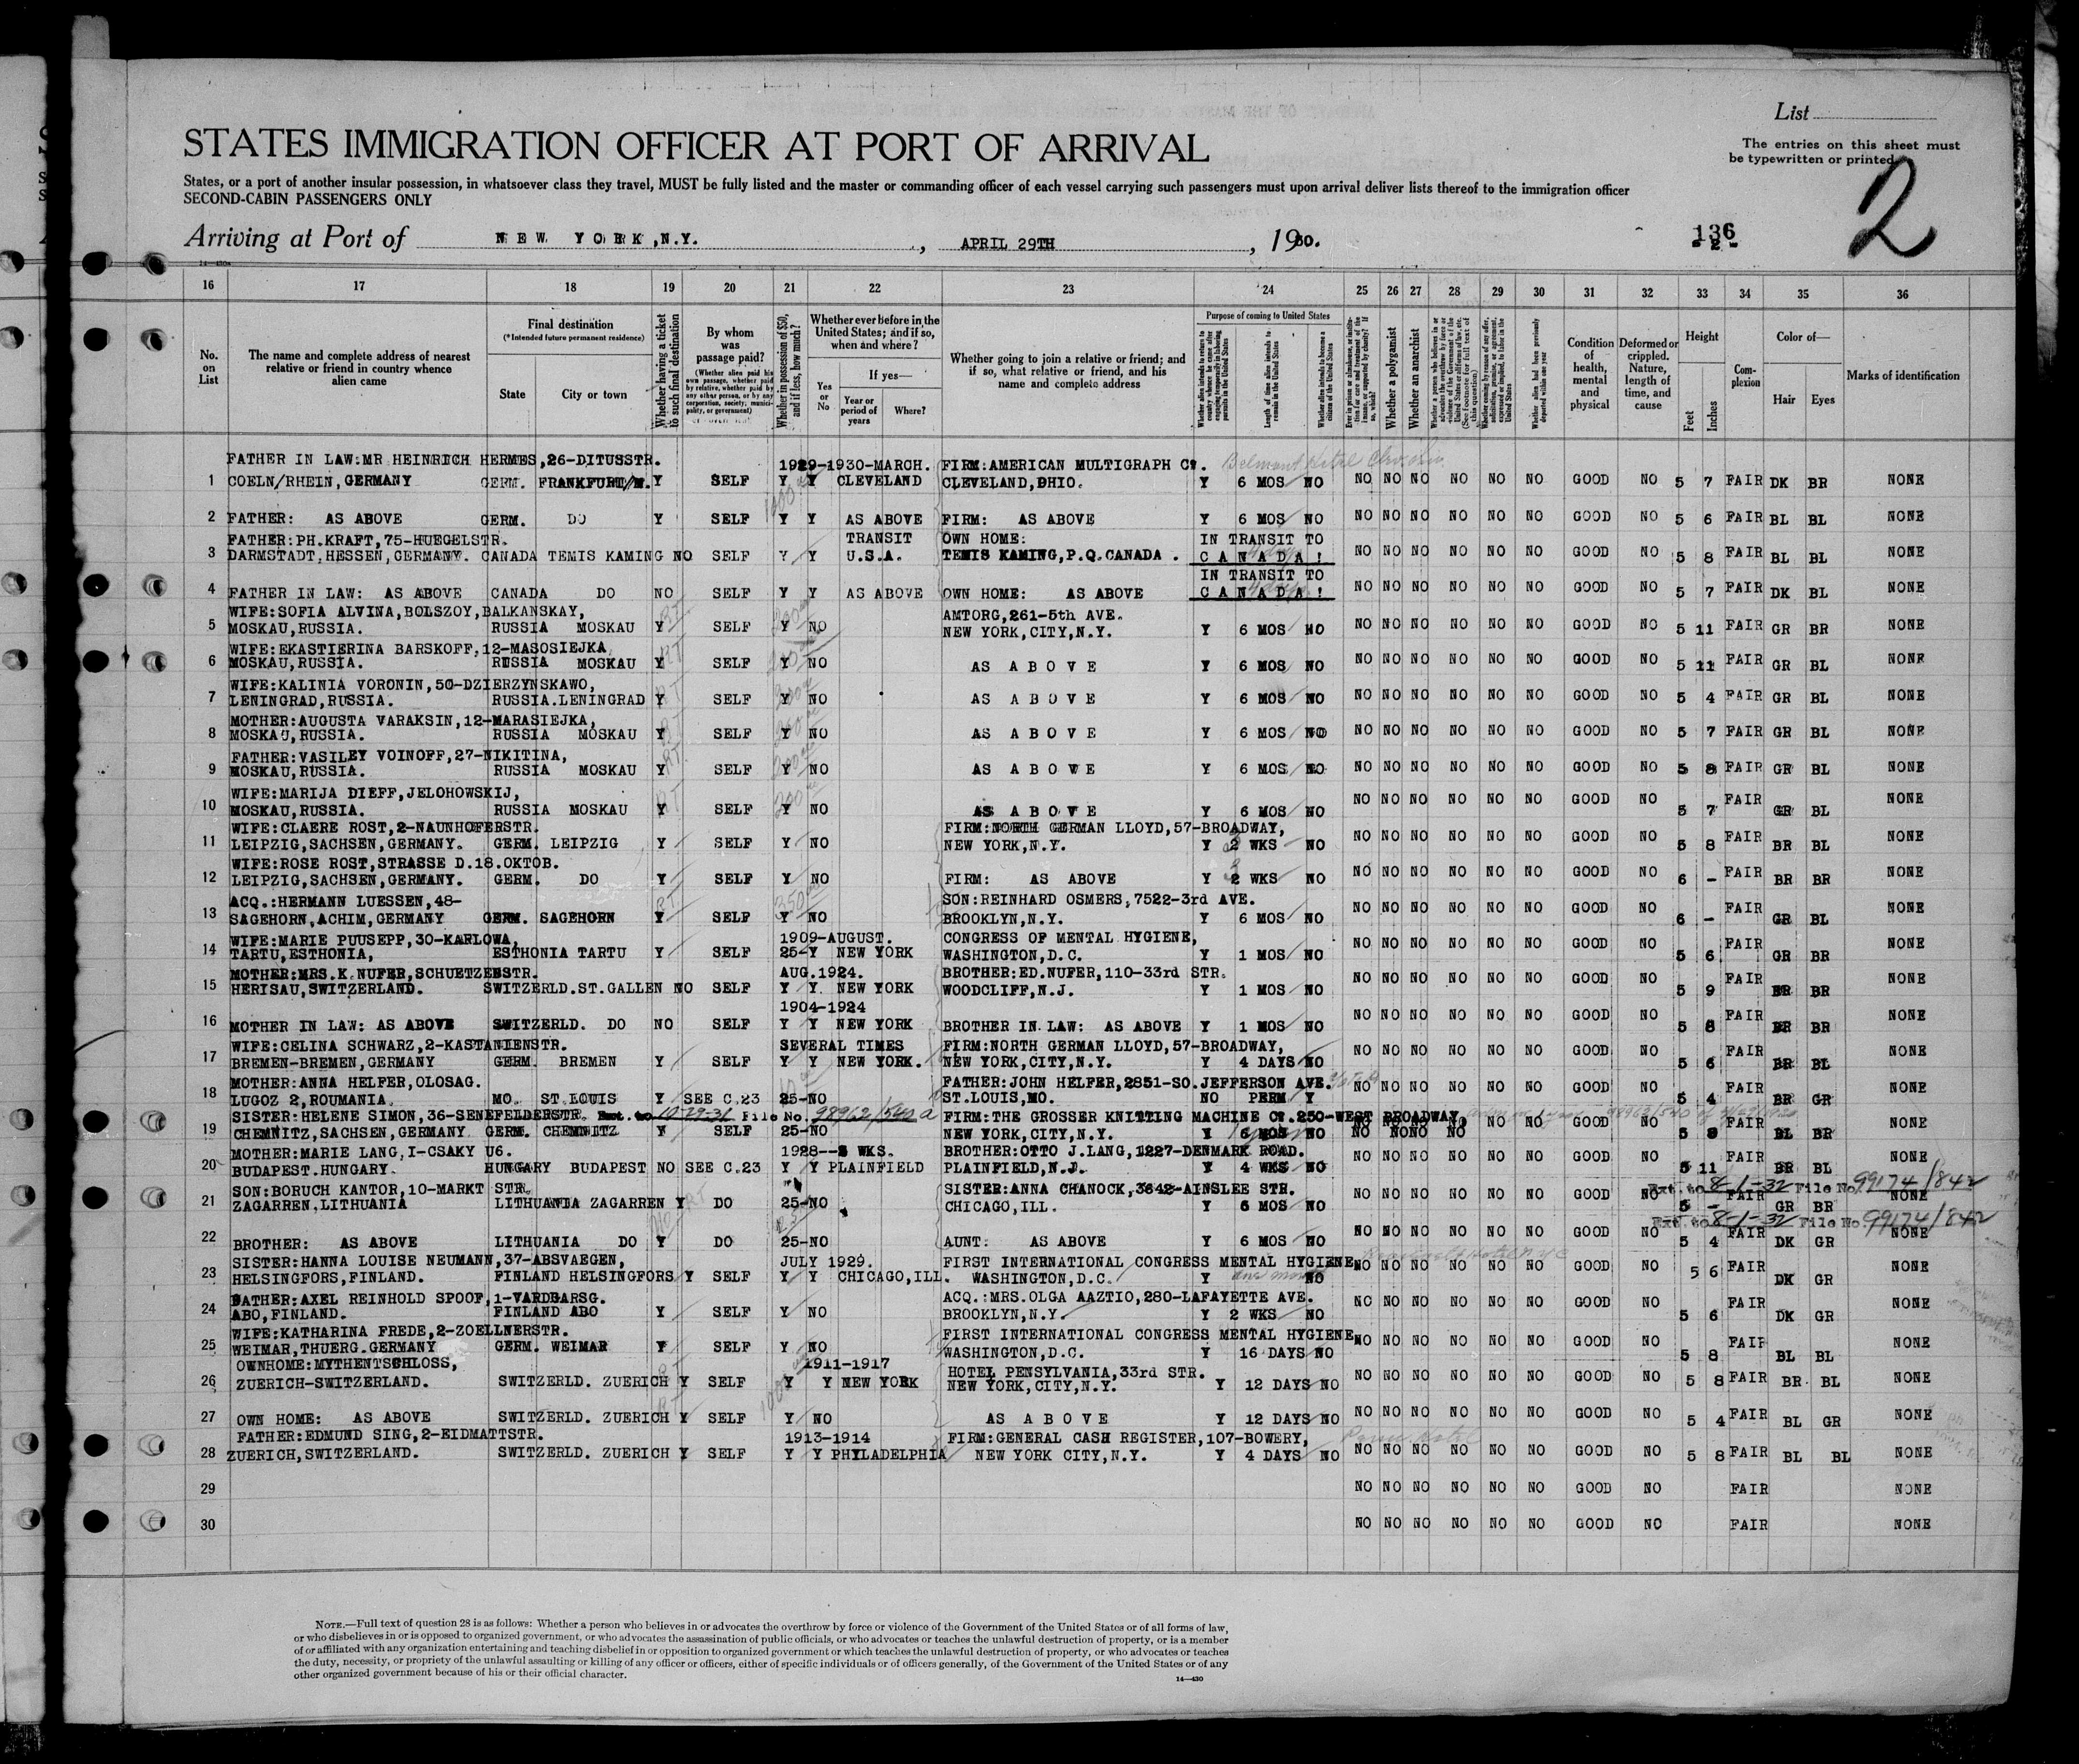 List
The entries on this sheet must
be typewritten or printed
2
STATES IMMIGRATION OFFICER AT PORT OF ARRIVAL
States, or a port of another insular possession, in whatsoever class they travel, MUST be fully listed and the master or commanding officer of each vessel carrying such passengers must upon arrival deliver lists thereof to the immigration officer
SECOND-CABIN PASSENGERS ONLY
Arriving at Port of NEW YORK,N.Y. , APRIL 29TH , 1930.
136
- 2 -
16 17 18 19 20 21 22 23 24 25 26 27 28 29 30 31 32 33 34 35 36
No. on List
The name and complete address of nearest relative or friend in country whence alien came
Final destination (*Intended future permanent residence)
State City or town
Whether having a ticket to such final destination
By whom was passage paid?
(Whether alien paid his own passage, whether paid by relative, whether paid by any other person, or by any corporation, society, municipality, or government)
Whether in possession of $50, and if less, how much?
Whether ever before in the United States; and if so, when and where?
Yes or No
If yes—
Year or period of years
Where?
Whether going to join a relative or friend; and if so, what relative or friend, and his name and complete address
Purpose of coming to United States
Length of time alien intends to remain in the United States
Whether alien intends to become a citizen of the United States
Whether a polygamist
Whether an anarchist
Condition of health, mental and physical
Deformed or crippled. Nature, length of time, and cause
Height
Feet Inches
Complexion
Color of—
Hair Eyes
Marks of identification
FATHER IN LAW:MR HEINRICH HERMES,26-DITUSSTR. 1929-1930-MARCH. FIRM:AMERICAN MULTIGRAPH Co.
1 COELN/RHEIN,GERMANY GERM. FRANKFURT/M. Y SELF Y Y CLEVELAND CLEVELAND,OHIO. Y 6 MOS NO NO NO NO NO NO NO GOOD NO 5 7 FAIR DK BR NONE
2 FATHER: AS ABOVE GERM. DO Y SELF Y Y AS ABOVE FIRM: AS ABOVE Y 6 MOS NO NO NO NO NO NO NO GOOD NO 5 6 FAIR BL BL NONE
FATHER:PH.KRAFT,75-HUEGELSTR. TRANSIT OWN HOME: IN TRANSIT TO
3 DARMSTADT,HESSEN,GERMANY. CANADA TEMIS KAMING NO SELF Y Y U.S.A. TEMIS KAMING,P.Q.CANADA. CANADA! NO NO NO NO NO NO GOOD NO 5 8 FAIR BL BL NONE
IN TRANSIT TO
4 FATHER IN LAW: AS ABOVE CANADA DO NO SELF Y Y AS ABOVE OWN HOME: AS ABOVE CANADA! NO NO NO NO NO NO GOOD NO 5 7 FAIR DK BL NONE
WIFE:SOFIA ALVINA,BOLSZOY,BALKANSKAY, AMTORG,261-5th AVE.
5 MOSKAU,RUSSIA. RUSSIA MOSKAU Y SELF Y NO NEW YORK,CITY,N.Y. Y 6 MOS NO NO NO NO NO NO NO GOOD NO 5 11 FAIR GR BR NONE
WIFE:EKASTIERINA BARSKOFF,12-MASOSIEJKA
6 MOSKAU,RUSSIA. RUSSIA MOSKAU Y SELF Y NO AS ABOVE Y 6 MOS NO NO NO NO NO NO NO GOOD NO 5 11 FAIR GR BL NONE
WIFE:KALINIA VORONIN,50-DZIERZYNSKAWO,
7 LENINGRAD,RUSSIA. RUSSIA.LENINGRAD Y SELF Y NO AS ABOVE Y 6 MOS NO NO NO NO NO NO NO GOOD NO 5 4 FAIR GR BL NONE
MOTHER:AUGUSTA VARAKSIN,12-MARASIEJKA,
8 MOSKAU,RUSSIA. RUSSIA MOSKAU Y SELF Y NO AS ABOVE Y 6 MOS NO NO NO NO NO NO NO GOOD NO 5 7 FAIR GR BL NONE
FATHER:VASILEY VOINOFF,27-NIKITINA,
9 MOSKAU,RUSSIA. RUSSIA MOSKAU Y SELF Y NO AS ABOVE Y 6 MOS NO NO NO NO NO NO NO GOOD NO 5 8 FAIR GR BL NONE
WIFE:MARIJA DIEFF,JELOHOWSKIJ,
10 MOSKAU,RUSSIA. RUSSIA MOSKAU Y SELF Y NO AS ABOVE Y 6 MOS NO NO NO NO NO NO NO GOOD NO 5 7 FAIR GR BL NONE
WIFE:CLAERE ROST,2-NAUNHOFERSTR. FIRM:NORTH GERMAN LLOYD,57-BROADWAY,
11 LEIPZIG,SACHSEN,GERMANY. GERM. LEIPZIG Y SELF Y NO NEW YORK,N.Y. Y 2 WKS NO NO NO NO NO NO NO GOOD NO 5 8 FAIR BR BL NONE
WIFE:ROSE ROST,STRASSE D.18.OKTOB.
12 LEIPZIG,SACHSEN,GERMANY. GERM. DO Y SELF Y NO FIRM: AS ABOVE Y 2 WKS NO NO NO NO NO NO NO GOOD NO 6 - FAIR BR BR NONE
ACQ.:HERMANN LUESSEN,48- SON:REINHARD OSMERS,7522-3rd AVE.
13 SAGEHORN,ACHIM,GERMANY GERM. SAGEHORN Y SELF Y NO BROOKLYN,N.Y. Y 6 MOS NO NO NO NO NO NO NO GOOD NO 6 - FAIR GR BL NONE
WIFE:MARIE PUUSEPP,30-KARLOWA, 1909-AUGUST. CONGRESS OF MENTAL HYGIENE,
14 TARTU,ESTHONIA, ESTHONIA TARTU Y SELF 25-Y NEW YORK WASHINGTON,D.C. Y 1 MOS NO NO NO NO NO NO NO GOOD NO 5 6 FAIR GR BR NONE
MOTHER:MRS.K.NUFER,SCHUETZENSTR. AUG.1924. BROTHER:ED.NUFER,110-33rd STR.
15 HERISAU,SWITZERLAND. SWITZERLD.ST.GALLEN NO SELF Y Y NEW YORK WOODCLIFF,N.J. Y 1 MOS NO NO NO NO NO NO NO GOOD NO 5 9 FAIR BR BR NONE
1904-1924
16 MOTHER IN LAW: AS ABOVE SWITZERLD. DO NO SELF Y Y NEW YORK BROTHER IN LAW: AS ABOVE Y 1 MOS NO NO NO NO NO NO NO GOOD NO 5 8 FAIR BR BR NONE
WIFE:CELINA SCHWARZ,2-KASTANIENSTR. SEVERAL TIMES FIRM:NORTH GERMAN LLOYD,57-BROADWAY,
17 BREMEN-BREMEN,GERMANY GERM. BREMEN Y SELF Y Y NEW YORK. NEW YORK,CITY,N.Y. Y 4 DAYS NO NO NO NO NO NO NO GOOD NO 5 6 FAIR BR BL NONE
MOTHER:ANNA HELFER,OLOSAG. FATHER:JOHN HELFER,2851-SO.JEFFERSON AVE.
18 LUGOZ 2,ROUMANIA. MO. ST.LOUIS Y SEE C.23 25-NO ST.LOUIS,MO. NO PERM Y NO NO NO NO NO NO GOOD NO 5 4 FAIR BR GR NONE
SISTER:HELENE SIMON,36-SENEFELDERSTR. Ext. to 10-29-31 File No. 98962/540 a FIRM:THE GROSSER KNITTING MACHINE Co.250-WEST BROADWAY
19 CHEMNITZ,SACHSEN,GERMANY GERM. CHEMNITZ Y SELF 25-NO NEW YORK,CITY,N.Y. Y 6 MOS NO NO NO NO NO NO NO GOOD NO 5 8 FAIR BL BR NONE
MOTHER:MARIE LANG,I-CSAKY U6. 1928--3 WKS. BROTHER:OTTO J.LANG,1227-DENMARK ROAD.
20 BUDAPEST.HUNGARY. HUNGARY BUDAPEST NO SEE C.23 Y Y PLAINFIELD PLAINFIELD,N.J. Y 4 WKS NO NO NO NO NO NO NO GOOD NO 5 11 FAIR BR BL NONE
SON:BORUCH KANTOR,10-MARKT STR. SISTER:ANNA CHANOCK,3642-AINSLEE STR. Ext. to 8-1-32 File No. 99174/842
21 ZAGARREN,LITHUANIA LITHUANIA ZAGARREN Y DO 25-NO CHICAGO,ILL. Y 6 MOS NO NO NO NO NO NO NO GOOD NO 5 - FAIR GR BR NONE
Ext. to 8-1-32 File No. 99174/842
22 BROTHER: AS ABOVE LITHUANIA DO Y DO 25-NO AUNT: AS ABOVE Y 6 MOS NO NO NO NO NO NO NO GOOD NO 5 4 FAIR DK GR NONE
SISTER:HANNA LOUISE NEUMANN,37-ABSVAEGEN, JULY 1929. FIRST INTERNATIONAL CONGRESS MENTAL HYGIENE
23 HELSINGFORS,FINLAND. FINLAND HELSINGFORS Y SELF Y Y CHICAGO,ILL. WASHINGTON,D.C. Y one month NO NO NO NO NO NO NO GOOD NO 5 6 FAIR DK GR NONE
FATHER:AXEL REINHOLD SPOOF,1-VARDBARSG. ACQ.:MRS.OLGA AAZTIO,280-LAFAYETTE AVE.
24 ABO,FINLAND. FINLAND ABO Y SELF Y NO BROOKLYN,N.Y. Y 2 WKS NO NO NO NO NO NO NO GOOD NO 5 6 FAIR DK GR NONE
WIFE:KATHARINA FREDE,2-ZOELLNERSTR. FIRST INTERNATIONAL CONGRESS MENTAL HYGIENE
25 WEIMAR,THUERG.GERMANY GERM. WEIMAR Y SELF Y NO WASHINGTON,D.C. Y 16 DAYS NO NO NO NO NO NO NO GOOD NO 5 8 FAIR BL BL NONE
OWNHOME:MYTHENTSCHLOSS, 1911-1917 HOTEL PENSYLVANIA,33rd STR.
26 ZUERICH-SWITZERLAND. SWITZERLD. ZUERICH Y SELF Y Y NEW YORK NEW YORK,CITY,N.Y. Y 12 DAYS NO NO NO NO NO NO NO GOOD NO 5 8 FAIR BR BL NONE
27 OWN HOME: AS ABOVE SWITZERLD. ZUERICH Y SELF Y NO AS ABOVE Y 12 DAYS NO NO NO NO NO NO NO GOOD NO 5 4 FAIR BL GR NONE
FATHER:EDMUND SING,2-EIDMATTSTR. 1913-1914 FIRM:GENERAL CASH REGISTER,107-BOWERY,
28 ZUERICH,SWITZERLAND. SWITZERLD. ZUERICH Y SELF Y Y PHYLADELPHIA NEW YORK CITY,N.Y. Y 4 DAYS NO NO NO NO NO NO NO GOOD NO 5 8 FAIR BL BL NONE
29 NO NO NO NO NO NO GOOD NO FAIR NONE
30 NO NO NO NO NO NO GOOD NO FAIR NONE
NOTE.—Full text of question 28 is as follows: Whether a person who believes in or advocates the overthrow by force or violence of the Government of the United States or of all forms of law,
or who disbelieves in or is opposed to organized government, or who advocates the assassination of public officials, or who advocates or teaches the unlawful destruction of property, or is a member
of or affiliated with any organization entertaining and teaching disbelief in or opposition to organized government or which teaches the unlawful destruction of property, or who advocates or teaches
the duty, necessity, or propriety of the unlawful assaulting or killing of any officer or officers, either of specific individuals or of officers generally, of the Government of the United States or of any
other organized government because of his or their official character.
14—430